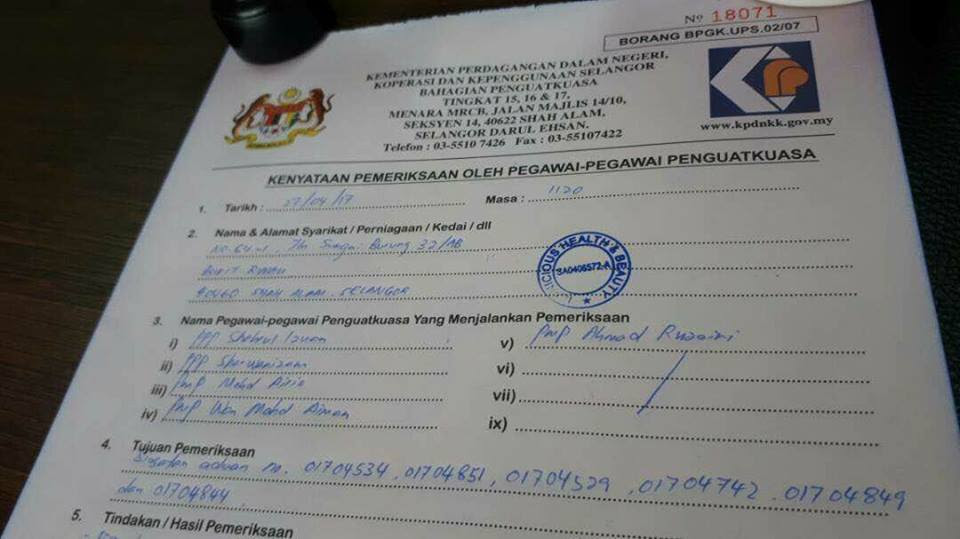 Nº 18071
BORANG BPGK.UPS.02/07
KEMENTERIAN PERDAGANGAN DALAM NEGERI,
KOPERASI DAN KEPENGGUNAAN SELANGOR
BAHAGIAN PENGUATKUASA
TINGKAT 15, 16 & 17,
MENARA MRCB, JALAN MAJLIS 14/10,
SEKSYEN 14, 40622 SHAH ALAM,
SELANGOR DARUL EHSAN.
Telefon : 03-5510 7426 Fax : 03-55107422
www.kpdnkk.gov.my
KENYATAAN PEMERIKSAAN OLEH PEGAWAI-PEGAWAI PENGUATKUASA
1. Tarikh : 27/04/17 Masa : 1120
2. Nama & Alamat Syarikat / Perniagaan / Kedai / dll
No. 64-1, Jln Sungai Burung 32/AB
Bukit Rimau
40460 SHAH ALAM, SELANGOR
CIOUS HEALTH & BEAUTY
SA0406572-A
3. Nama Pegawai-pegawai Penguatkuasa Yang Menjalankan Pemeriksaan
i) PPP Shahrul Izuan
ii) PPP
iii) PMP Mohd
iv) PMP Wan Mohd Aiman
v) PMP Ahmad
vi)
vii)
ix)
4. Tujuan Pemeriksaan
Siasatan aduan no. 01704534, 01704851, 01704529, 01704742, 01704849
dan 01704844.
5. Tindakan / Hasil Pemeriksaan